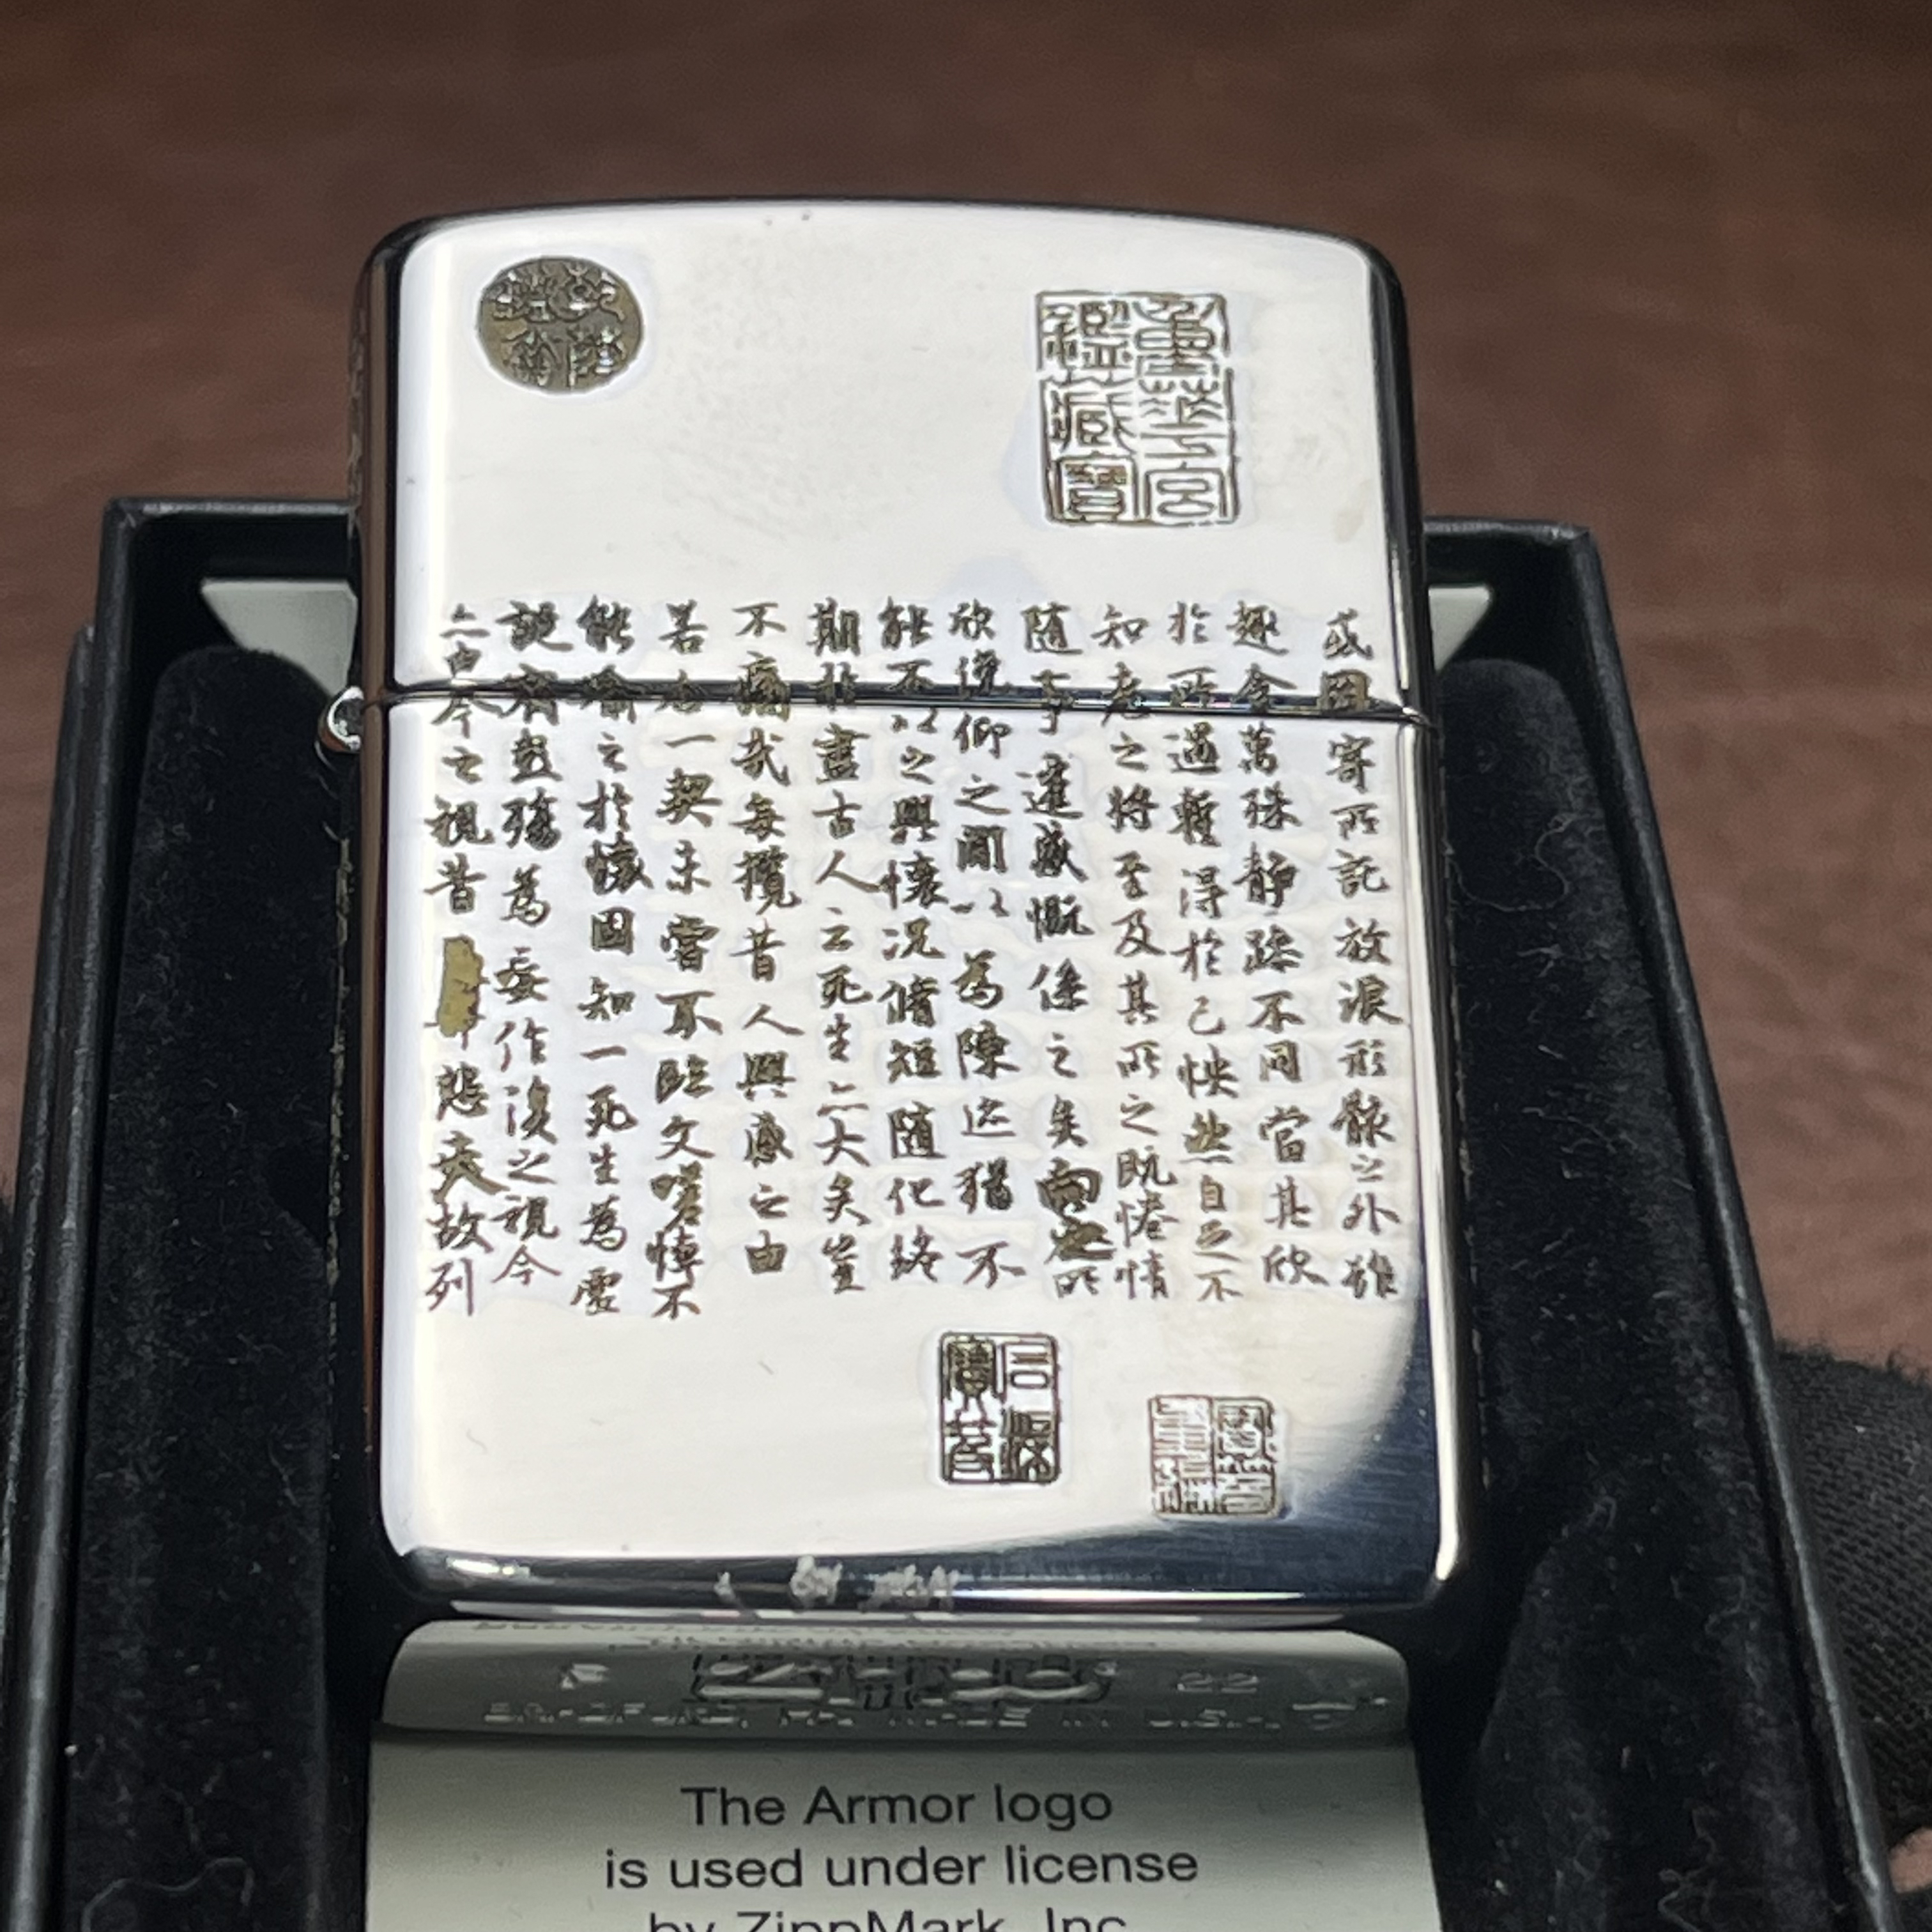 重華宮
鑑藏寶
或因寄所託放浪形骸之外雖
趣舍萬殊靜躁不同當其欣
於所遇暫得於己怏然自足不
知老之將至及其所之既惓情
隨事遷感慨係之矣向之所
欣俛仰之閒以為陳迹猶不
能不以之興懷況脩短隨化終
期於盡古人云死生亦大矣豈
不痛哉每攬昔人興感之由
若合一契未嘗不臨文嗟悼不
能喻之於懷固知一死生為虛
誕齊彭殤為妄作後之視今
亦由今之視昔悲夫故列
22
BRADFORD, PA. MADE IN U.S.A.
The Armor logo
is used under license
by ZippMark, Inc.